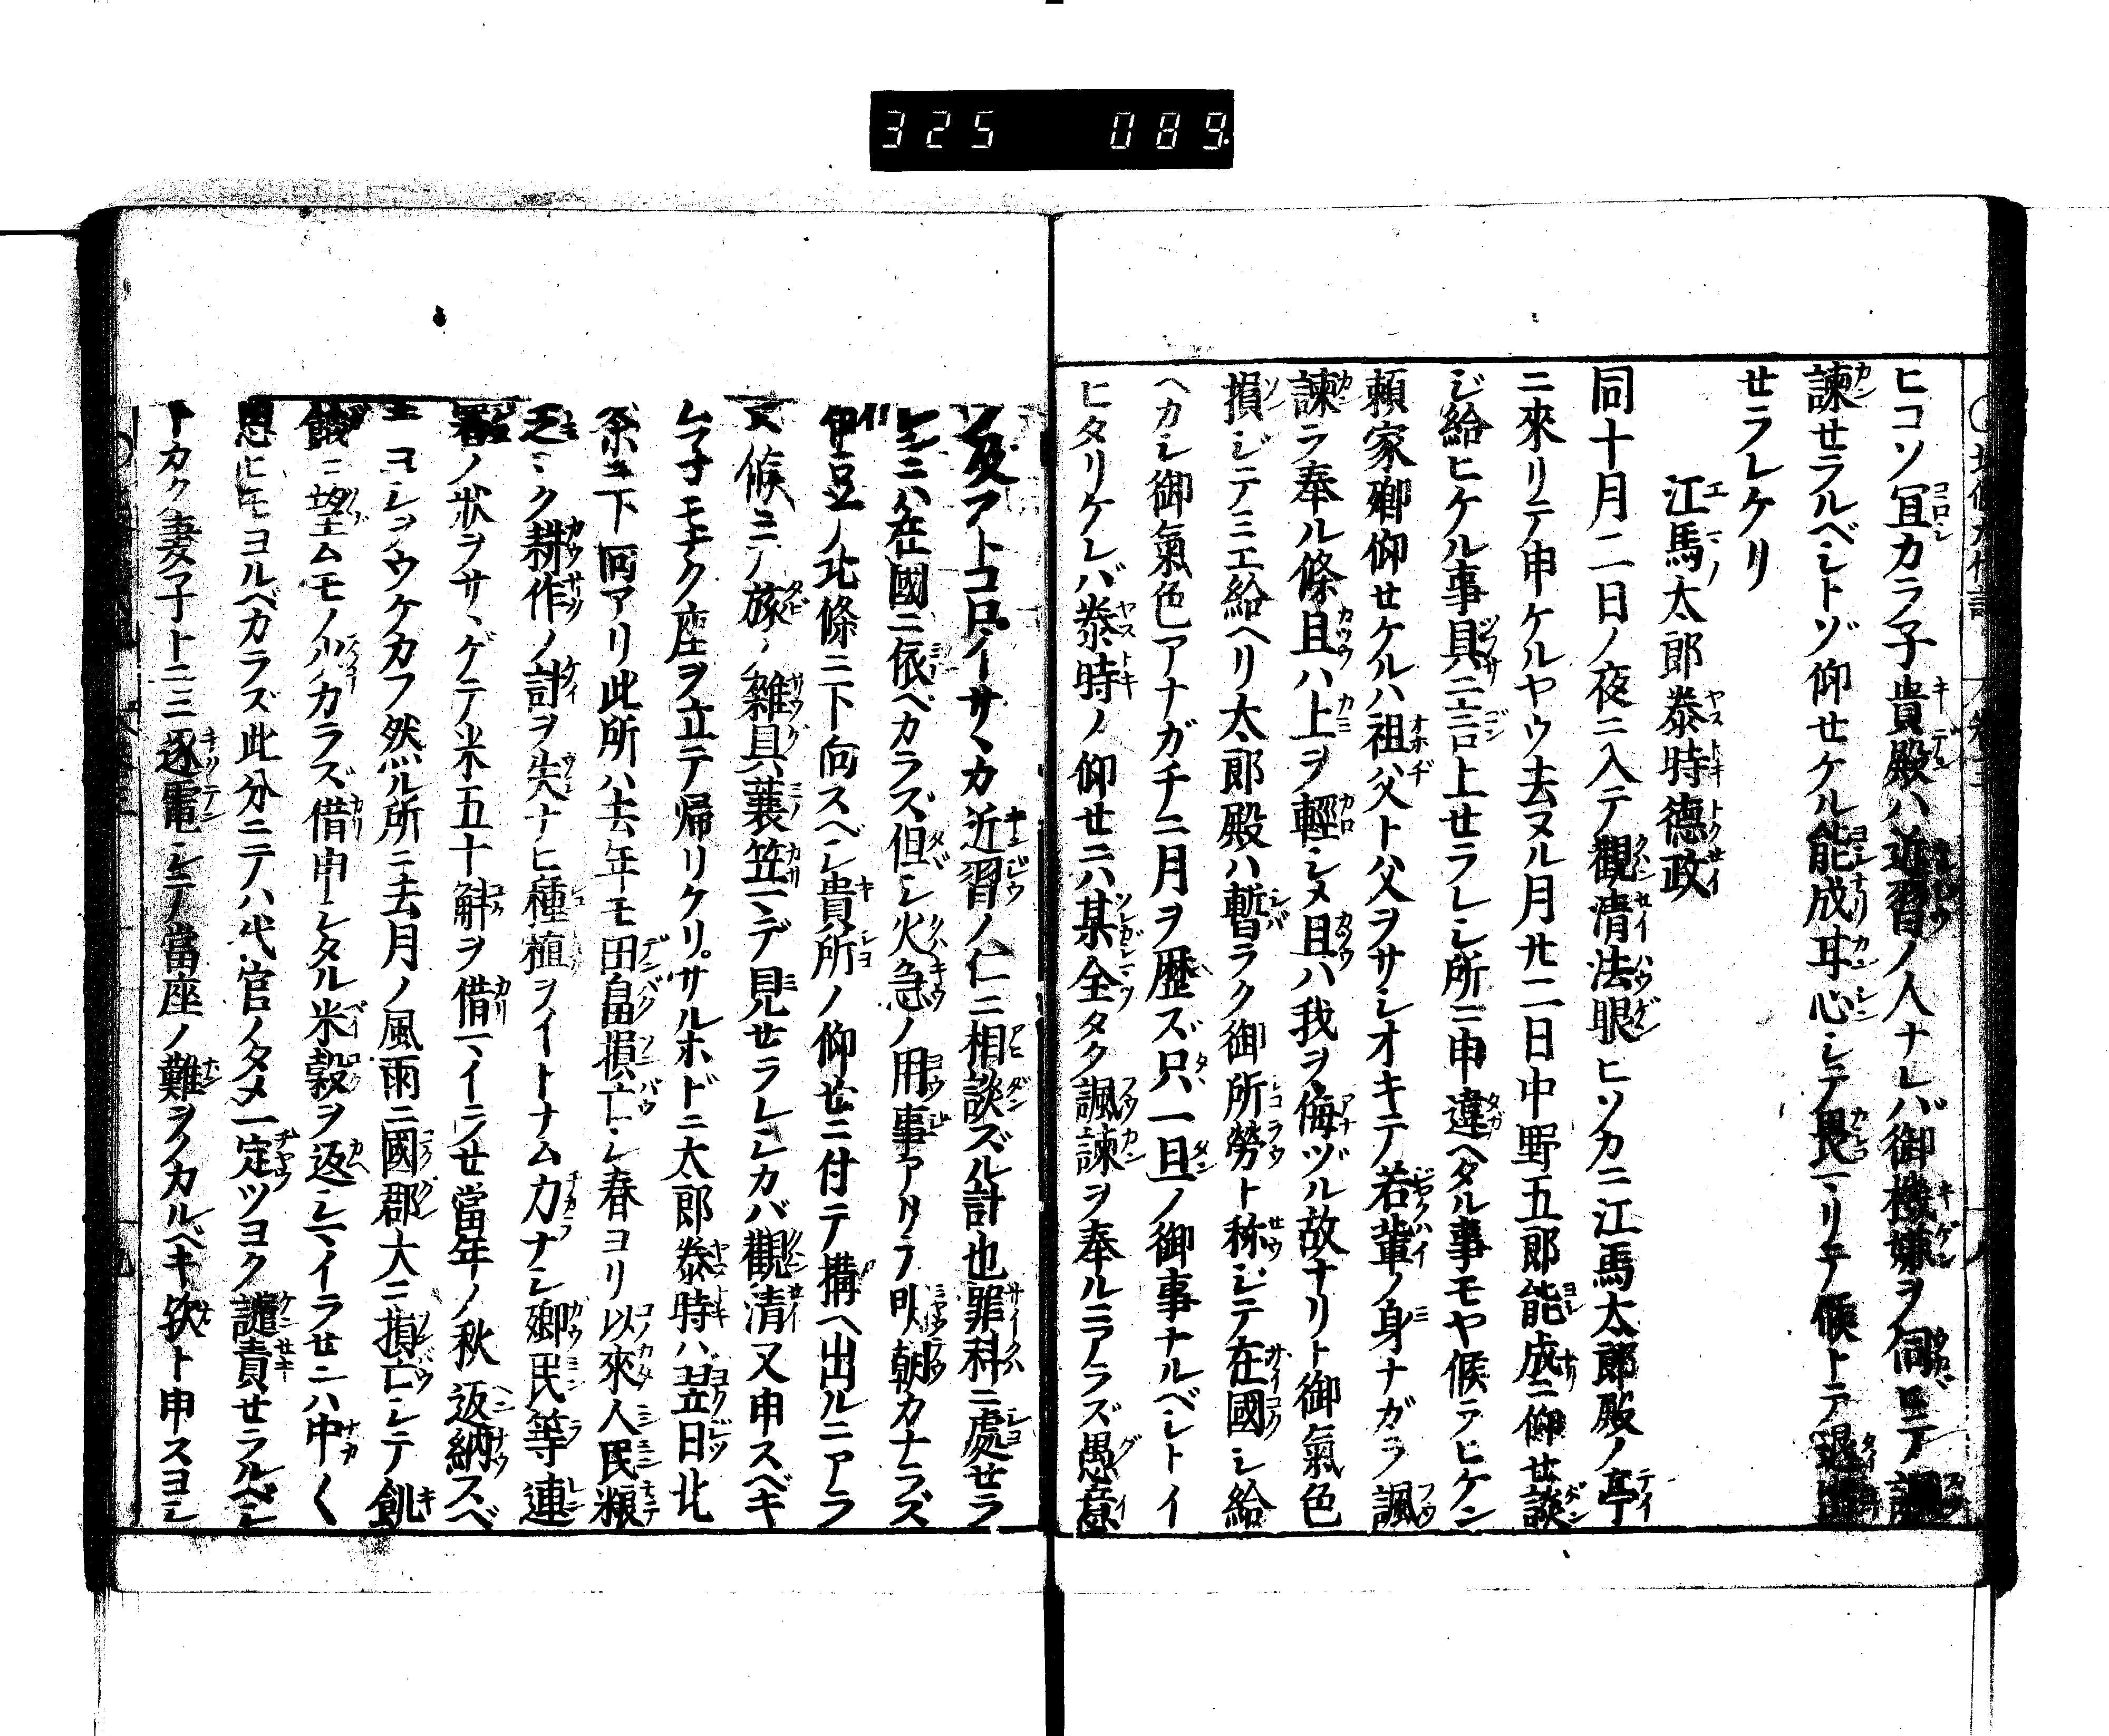 325 089
ヒコソ冝カラ子貴殿ハ近習ノ人ナレバ御機嫌ヲ伺ヒテ
諫せラルベシトゾ仰せケル能成耳心シテ畏マリテ候トテ退出
せラレケリ
江馬太郎泰時德政
同十月二日ノ夜ニ入テ觀清法眼ヒソカニ江馬太郎殿ノ亭
ニ來リテ申ケルヤウ去ヌル月廿二日中野五郎能成ニ仰せ談
ジ給ヒケル事具ニ言上せラレシ所ニ申違ヘタル事モヤ候ラヒケン
頼家卿仰せケルハ祖父ト父ヲサシオキテ若輩ノ身ナガラ諷
諫ラ奉ル條且ハ上ヲ輕シメ且ハ我ヲ侮ヅル故ナリト御氣色
損ジテミエ給ヘリ太郎殿ハ暫ラク御所勞ト称シテ在國シ給
ヘカシ御氣色アナガチニ月ヲ歴ズ只一旦ノ御事ナルベシトイ
ヒタリケレバ泰時ノ仰せニハ某全タク諷諫ヲ奉ルニアラズ愚意
ノ及フトコロイサヽカ近習ノ仁ニ相談ズル計也罪科ニ處せラ
レンニハ在國ニ依ベカラズ但シ火急ノ用事アリテ明朝カナラズ
伊豆ノ北條ニ下向スベシ貴所ノ仰せニ付テ搆ヘ出ルニアラ
ズ候ニノ旅ノ雑具蓑笠マデ見せラレシカバ觀清又申スベキ
ム子モナク座ヲ立テ帰リケリサルホドニ太郎泰時ハ翌日北
条ニ下向アリ此所ハ去年モ田畠損亡シ春ヨリ以來人民粮
乏シク耕作ノ計ヲ失ナヒ種植ヲイトナム力ナシ郷民等連
署ノ狀ヲサヽゲテ米五十斛ヲ借マイラせ當年ノ秋返納スベ
キヨシヲウケカフ然ル所ニ去月ノ風雨ニ國郡大ニ損亡シテ飢
餓ニ望ムモノ少カラズ借申シタル米穀ヲ返シマイラせニハ中く
思ヒモヨルベカラズ此分ニテハ代官ノタメ一定ツヨク譴責せラルベシ
トカク妻子トニニ逐電シテ當座ノ難ヲノカルベキ欤ト申スヨシ